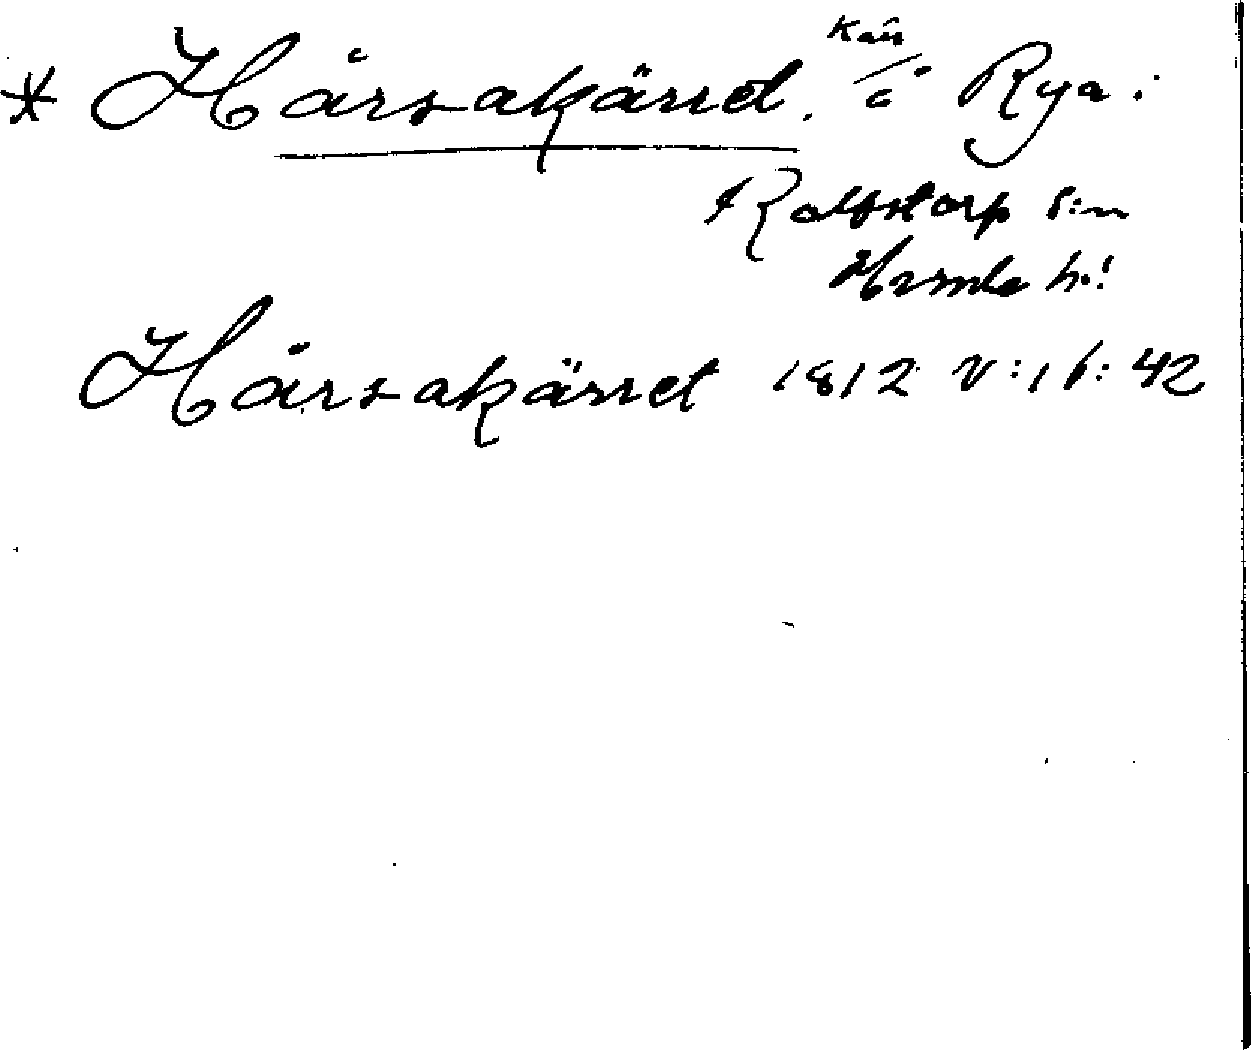 * Hårsakärret. kärr i Rya:
Rolfstorp s:n
Himle h.!
Hårsakärret 1812 V:16:42